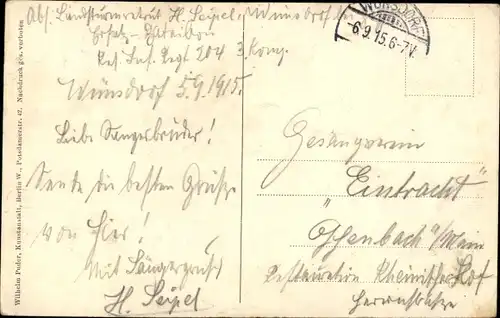 Abs. Landsturmrekrut H. Seipel, Wünsdorf
Ersatz-Bataillon
Res. Inf. Regt 204 3. Komp.
Wünsdorf 5.9.1915.
Liebe Sangesbrüder!
Sende die besten Grüße
von hier!
Mit Sängergruß
H. Seipel
WÜNSDORF
6.9.15.6-7V.
Gesangverein
"Eintracht"
Offenbach a/Main
Restauration Rheinischer Hof
Wilhelm Puder, Kunstanstalt, Berlin W., Potsdamerstr. 47. Nachdruck ges. verboten